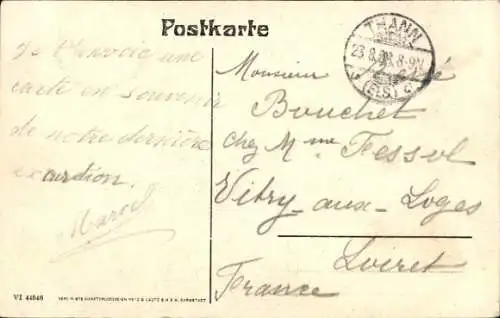 Postkarte
Je t'envoie une
carte en souvenir
de notre dernière
excursion.
Marcel
THANN
23.8.08.8-9V
(ELS.)
Monsieur
Bouchet
chez Mme Fessol
Vitry-aux-Loges
Loiret
France
VI 44848